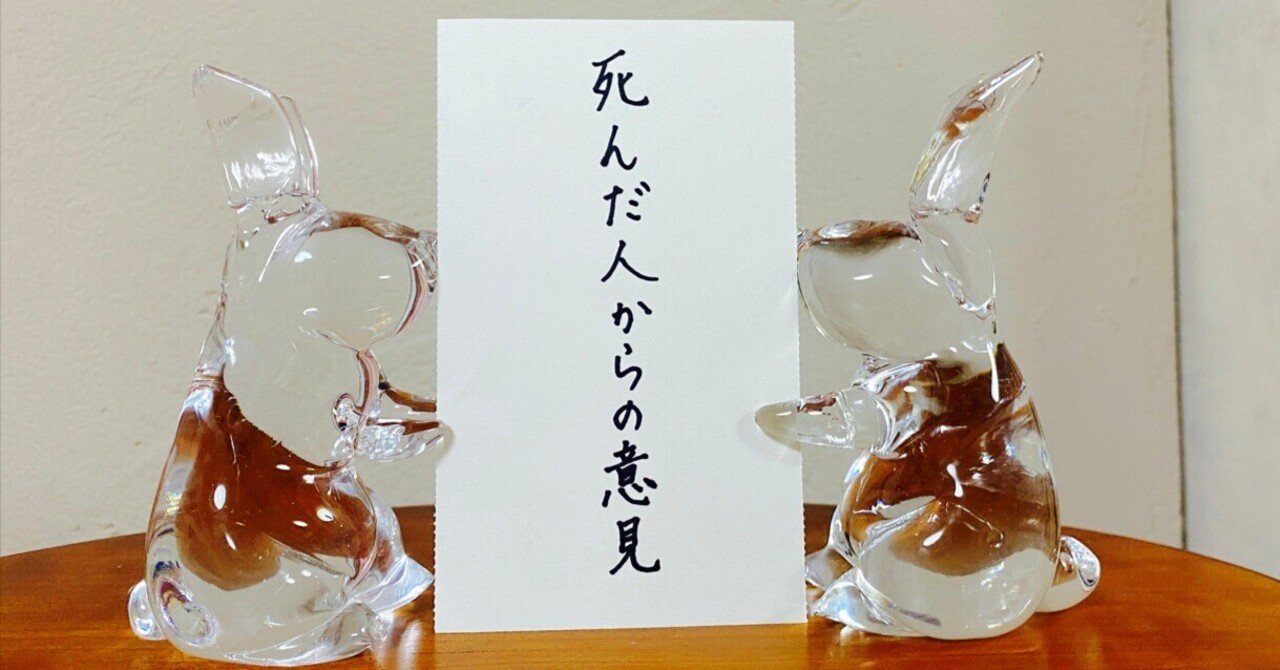 死んだ人からの意見